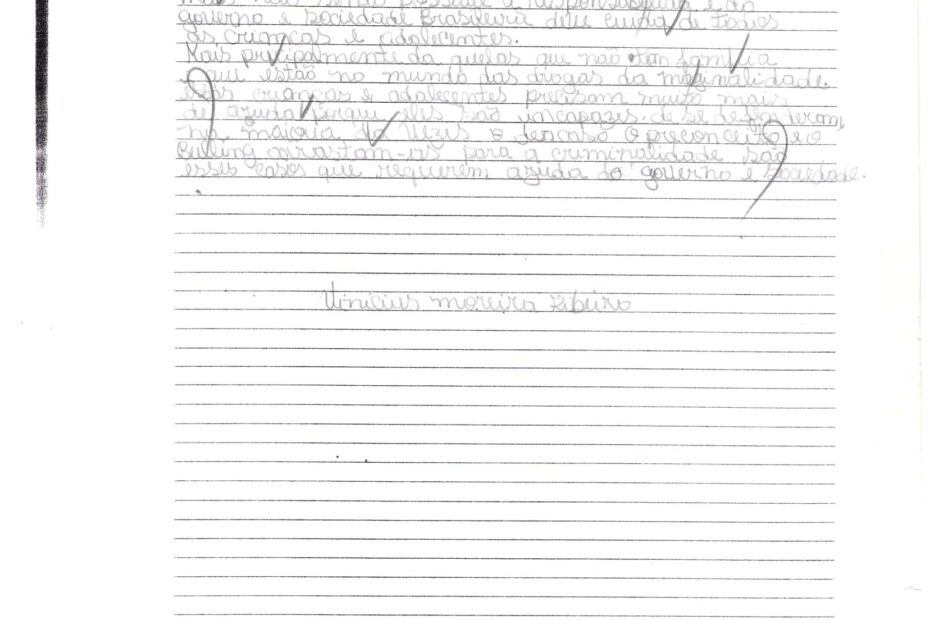 governo e sociedade Brasileira deve cuida de todos
as crianças e adolecentes.
Mais pricipalmente da quelas que não tem familia
que estão no mundo das drogas da miginalidade
crianças e adolecentes precisam muito mais
de azuda porque eles são incapazes de se defenderem,
na maioria do vezes o descaso o preconceito e o
Buling arrastam-os para a criminalidade São
esses casos que requerem azuda do governo e sociedade.
Vinicius moreira Ribeiro